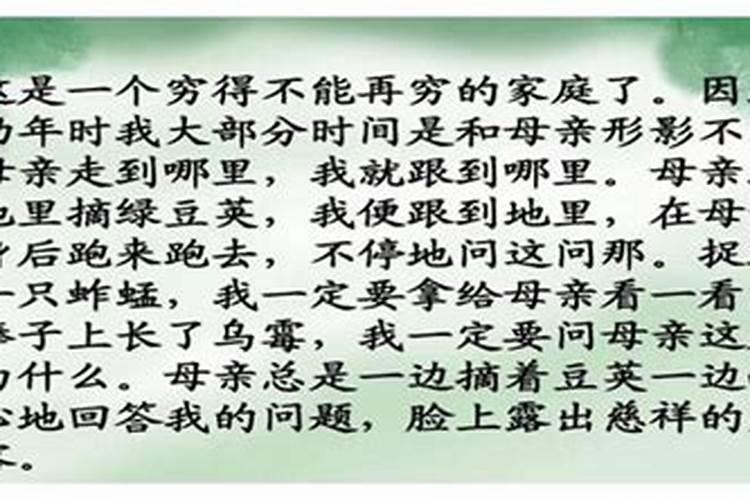 是一个穷得不能再穷的家庭了。因
年时我大部分时间是和母亲形影不
亲走到哪里，我就跟到哪里。母亲
里摘绿豆英，我便跟到地里，在母
后跑来跑去，不停地问这问那。捉
一只蚱蜢，我一定要拿给母亲看一看
子上长了乌霉，我一定要问母亲这
什么。母亲总是一边摘着豆英一边
地回答我的问题，脸上露出慈祥的
。